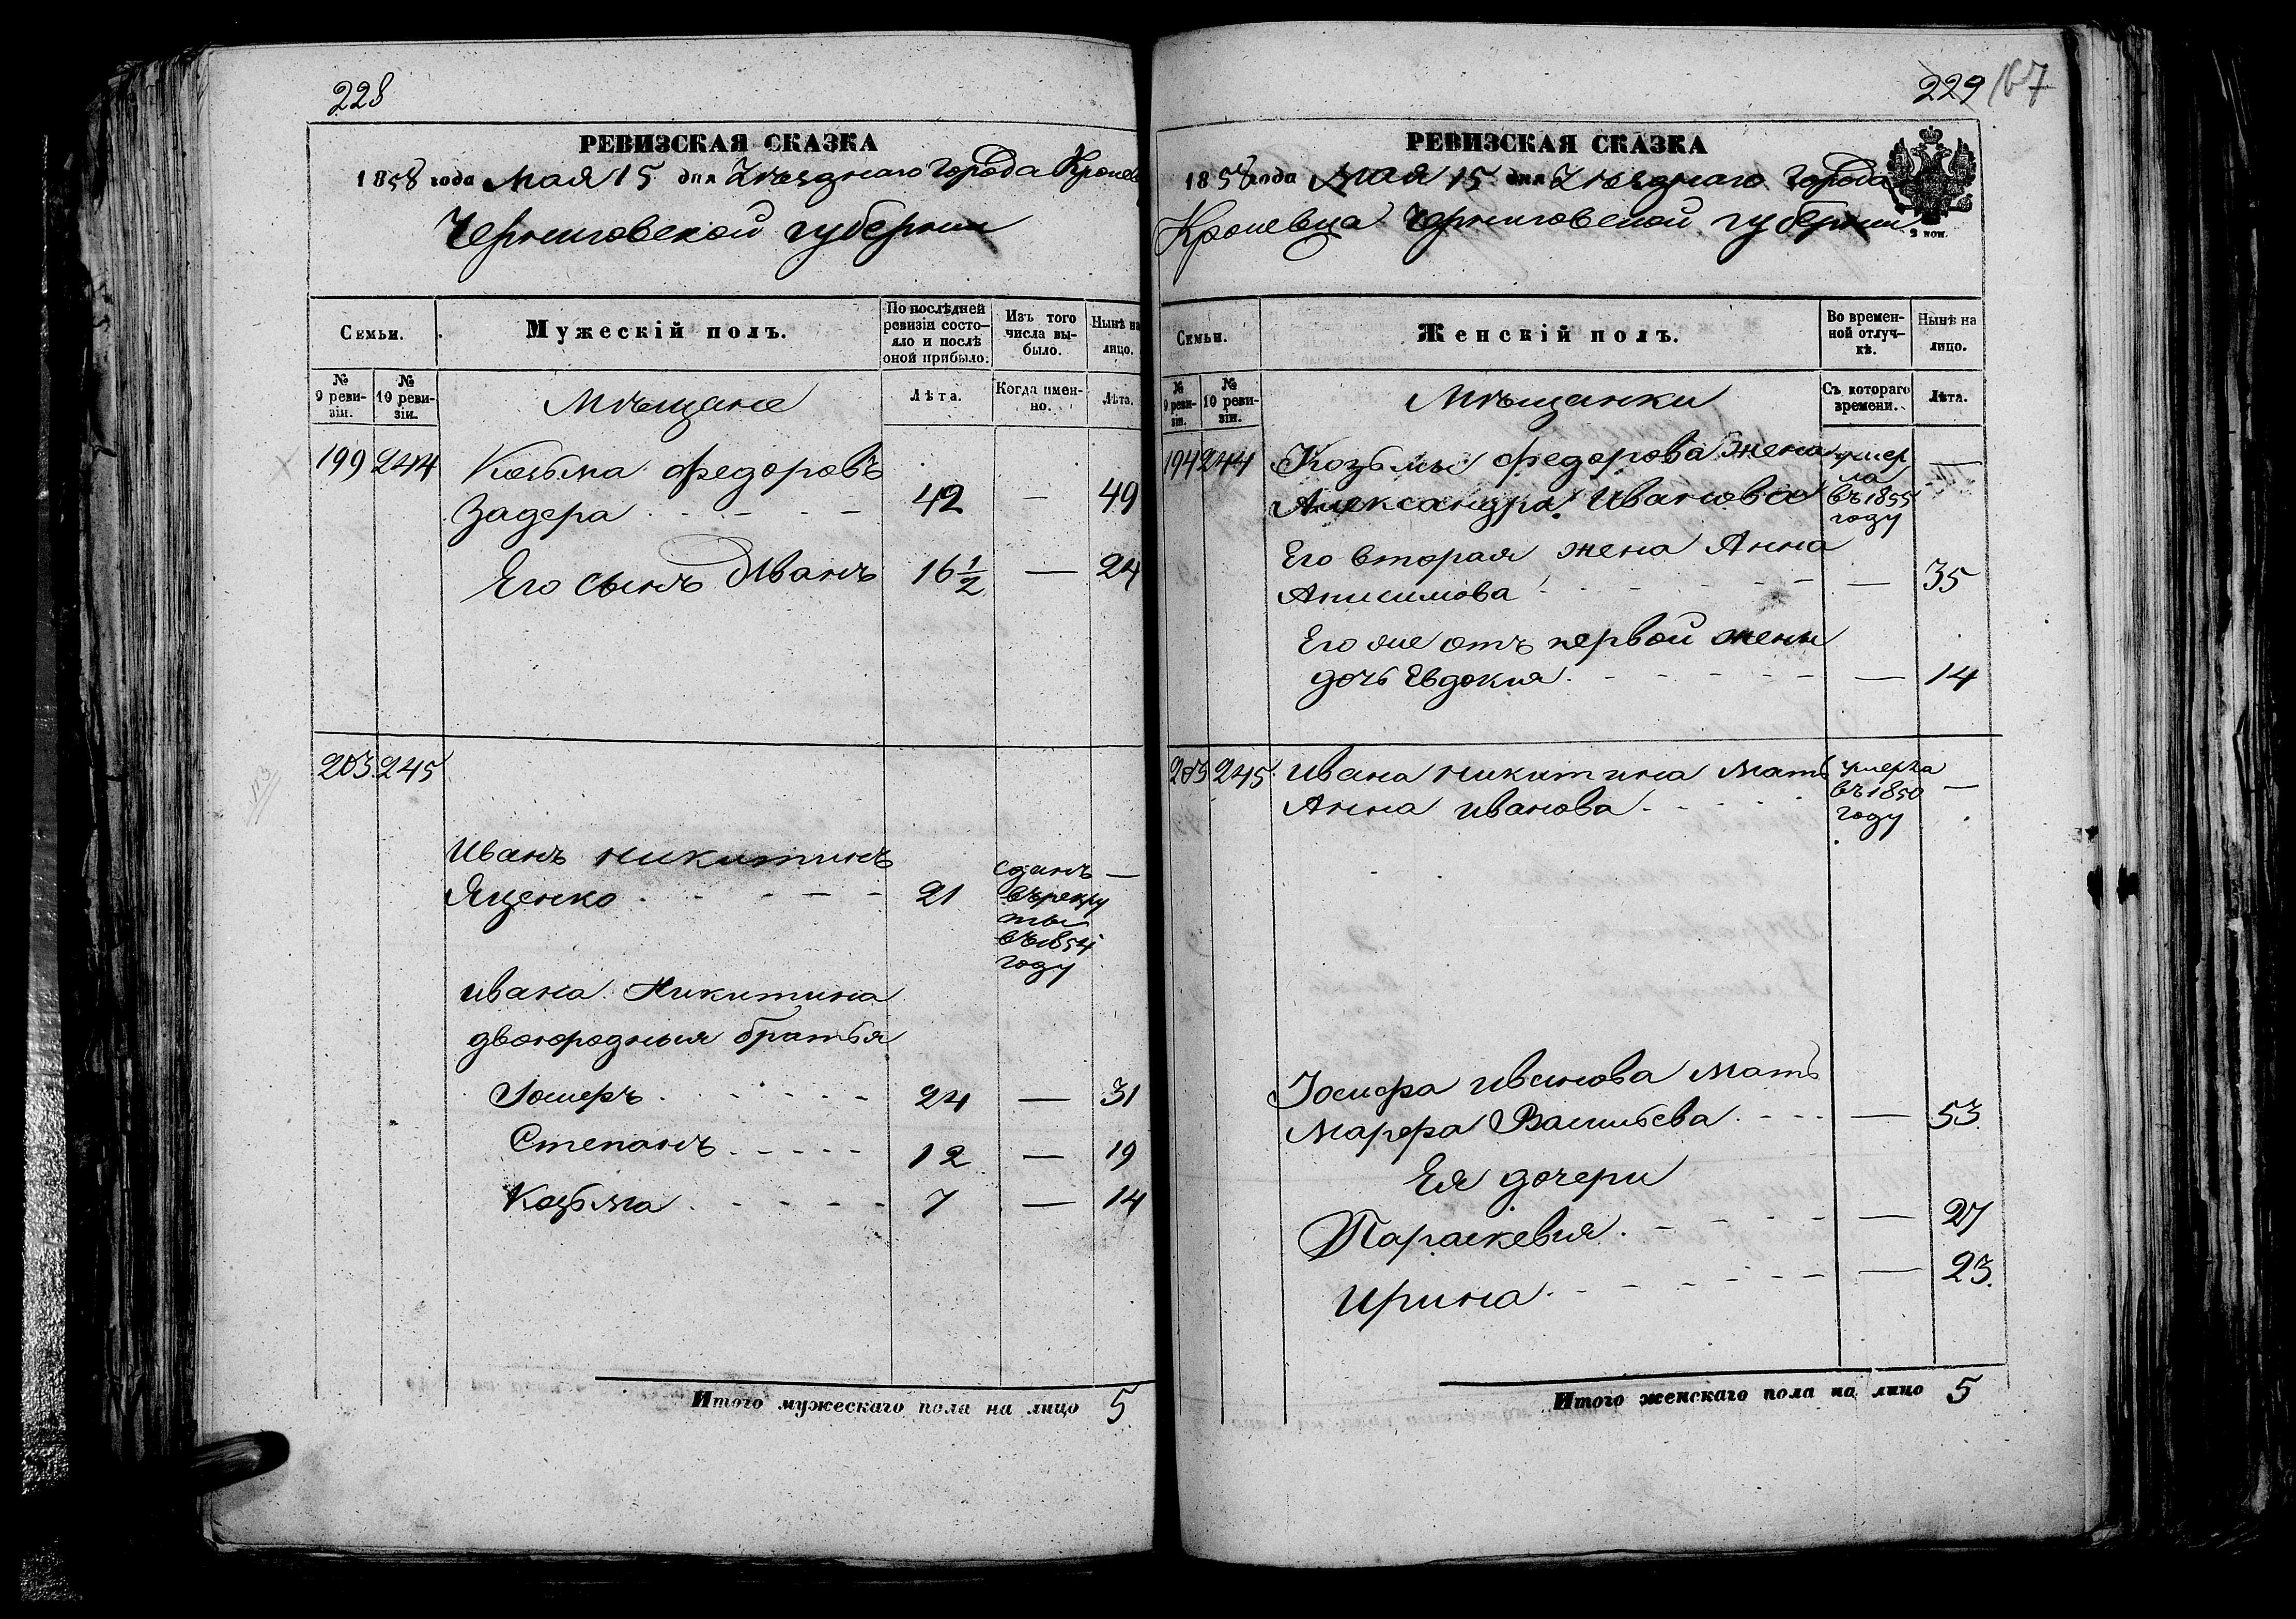 228
РЕВИЗСКАЯ СКАЗКА
1858 года Мая 15 дня Уѣзднаго города Кролев
Черниговской губернии
Семьи.
Мужескій полъ.
По послѣдней ревизіи состо-
яло и послѣ оной прибыло.
Изъ того числа вы-
было.
Нынѣ на лицо.
№ 9 реви-
зіи.
№ 10 реви-
зіи.
Мѣщане
Лѣта.
Когда имен-
но.
Лѣта.
199 244 Козьма Федоровъ
Задера - - - - 42 — 49
Его сынъ Иванъ 16 1/2 — 24
203 245
Иванъ Никитинъ
Яценко - - - - - 21 сданъ —
въ рекру
ты
въ 1854
году
Ивана Никитина
двоюродныя братья
Іосифъ - - - - - 24 — 31
Степанъ - - - - - 12 — 19
Козьма - - - - - 7 — 14
Итого мужескаго пола на лицо 5
229 167
РЕВИЗСКАЯ СКАЗКА
1858 года Мая 15 дня Уѣзднаго города
Кролевца Черниговской губернии
Семьи.
Женскій полъ.
Во времен-
ной отлуч-
кѣ.
Нынѣ на лицо.
№ 9 реви-
зіи.
№ 10 реви-
зіи.
Мѣщанки
Съ котораго времени.
Лѣта.
194 244 Козьмы Федорова жена умер —
ла
Александра Иванова въ 1855
году
Его вторая жена Анна
Анисимова - - - - - — 35
Его же отъ первой жены
дочь Евдокия - - - - - — 14
203 245 Ивана Никитина мать умерла —
Анна Иванова - - - - въ 1850
году
Іосифа Иванова мать
Марфа Васильева - - - — 53
Ея дочери
Параскевия - - - - — 27
Ирина - - - - - — 23.
Итого женскаго пола на лицо 5